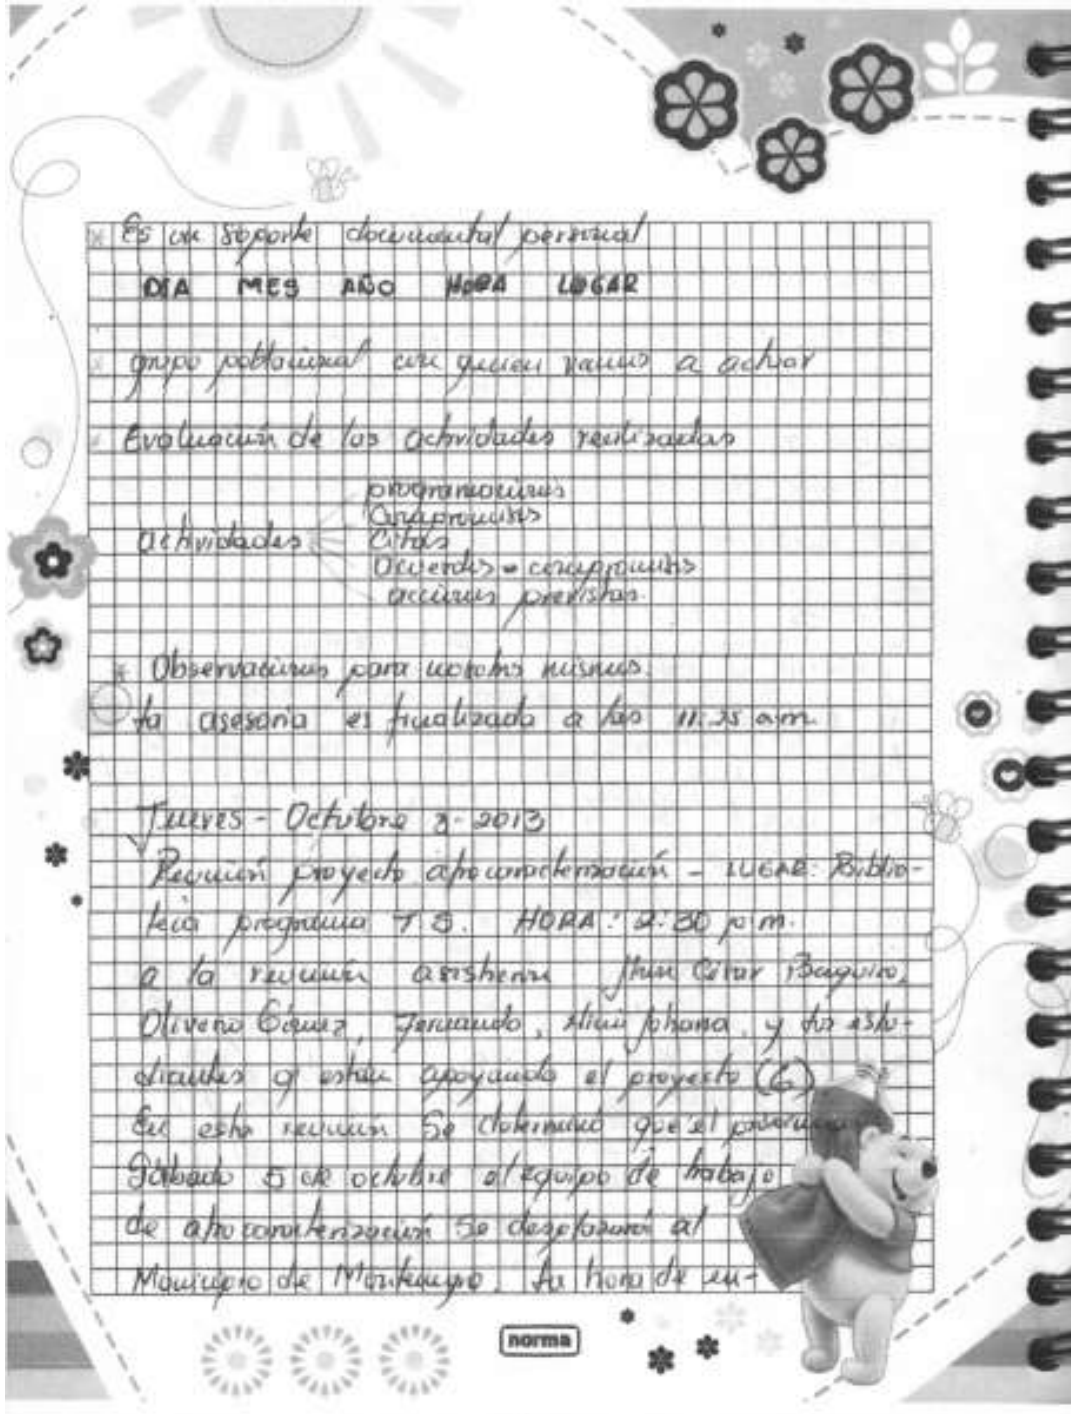 * Es un soporte documental personal
DIA MES AÑO HORA LUGAR
* grupo poblacional con quien vamos a actuar
* Evaluación de las actividades realizadas
programaciones
Compromisos
actividades Citas
acuerdos - compromisos
acciones previstas.
* Observaciones para nosotros mismos.
la asesoria es finalizada a las 11:25 a.m.
Jueves - Octubre 3-2013
Reunión proyecto afrocaracterización - LUGAR: Biblio-
teca programa T.S. HORA: 2:30 p.m.
a la reunión asistieron Jhon César
Gómez, Fernando, Johana, y los estu-
diantes q están apoyando el proyecto (6)
En esta reunión se determinó que el
Sábado 5 de octubre el equipo de trabajo
de afrocaracterización se desplazará al
Municipio de Montenegro. La hora de en-
norma